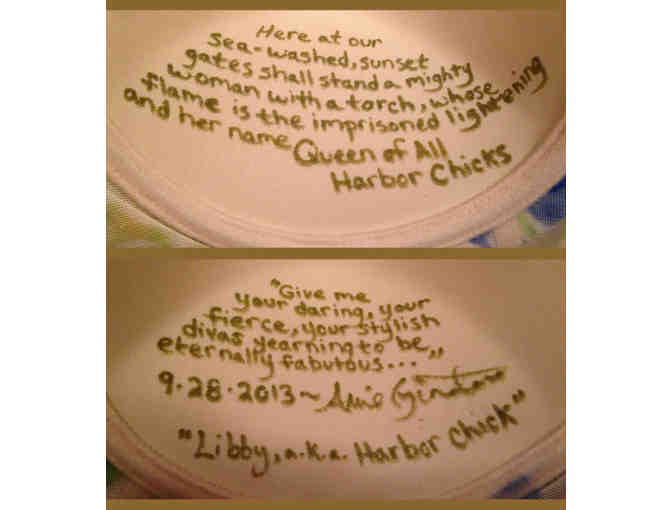 Here at our
sea-washed, sunset
gates shall stand a mighty
woman with a torch, whose
flame is the imprisoned lightening
and her name Queen of All
Harbor Chicks
"Give me
your daring, your
fierce, your stylish
divas yearning to be
eternally fabulous..."
9.28.2013~
"Libby, a.k.a. Harbor Chick"